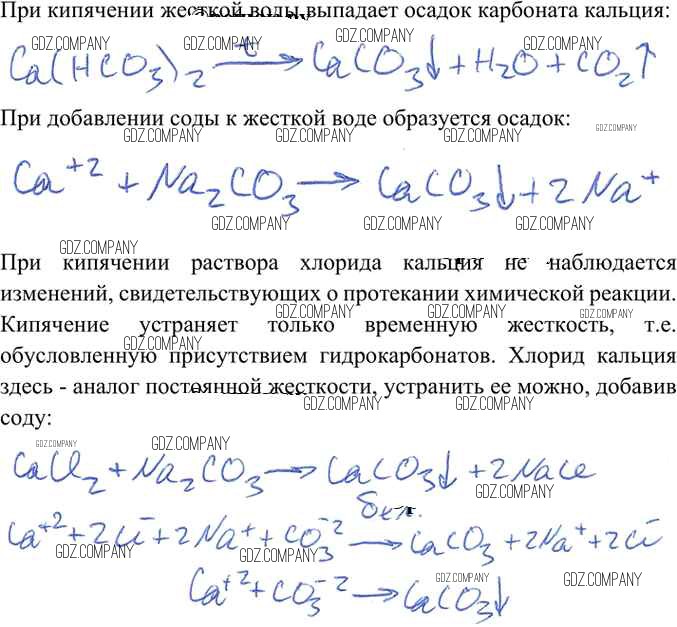 При кипячении жесткой воды выпадает осадок карбоната кальция:
GDZ.COMPANY GDZ.COMPANY GDZ.COMPANY GDZ.COMPANY
Ca(HCO₃)₂ →(t°) CaCO₃↓ + H₂O + CO₂↑
При добавлении соды к жесткой воде образуется осадок:
GDZ.COMPANY GDZ.COMPANY GDZ.COMPANY GDZ.COMPANY
Ca⁺² + Na₂CO₃ → CaCO₃↓ + 2Na⁺
GDZ.COMPANY GDZ.COMPANY GDZ.COMPANY
GDZ.COMPANY
При кипячении раствора хлорида кальция не наблюдается
изменений, свидетельствующих о протекании химической реакции.
GDZ.COMPANY GDZ.COMPANY GDZ.COMPANY
Кипячение устраняет только временную жесткость, т.е.
GDZ.COMPANY
обусловленную присутствием гидрокарбонатов. Хлорид кальция
здесь - аналог постоянной жесткости, устранить ее можно, добавив
GDZ.COMPANY GDZ.COMPANY
соду:
GDZ.COMPANY GDZ.COMPANY
CaCl₂ + Na₂CO₃ → CaCO₃↓ + 2NaCl
GDZ.COMPANY
бел.
Ca⁺² + 2Cl⁻ + 2Na⁺ + CO₃⁻² → CaCO₃ + 2Na⁺ + 2Cl⁻
GDZ.COMPANY GDZ.COMPANY GDZ.COMPANY
Ca⁺² + CO₃⁻² → CaCO₃↓
GDZ.COMPANY GDZ.COMPANY GDZ.COMPANY